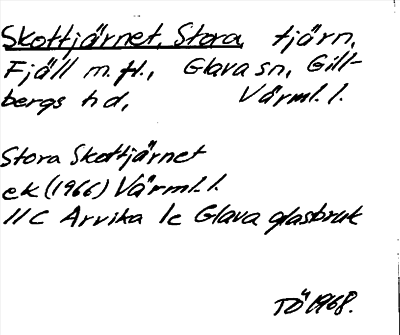 Skottjärnet, Stora, tjärn,
Fjäll m.fl., Glava sn, Gill-
bergs hd, Värml. l.
Stora Skottjärnet
ek (1966) Värml. l.
11C Arvika 1c Glava glasbruk
TÖ 1968.